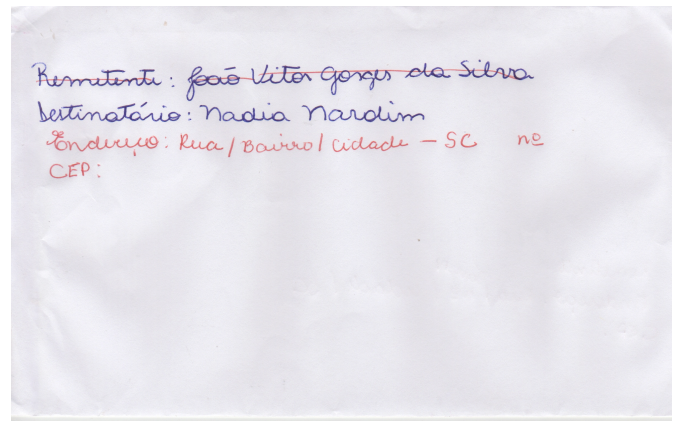 Remetente: João Vitor Gorges da Silva
Destinatário: Nadia Nardim
Endereço: Rua / Bairro / Cidade - SC nº
CEP: